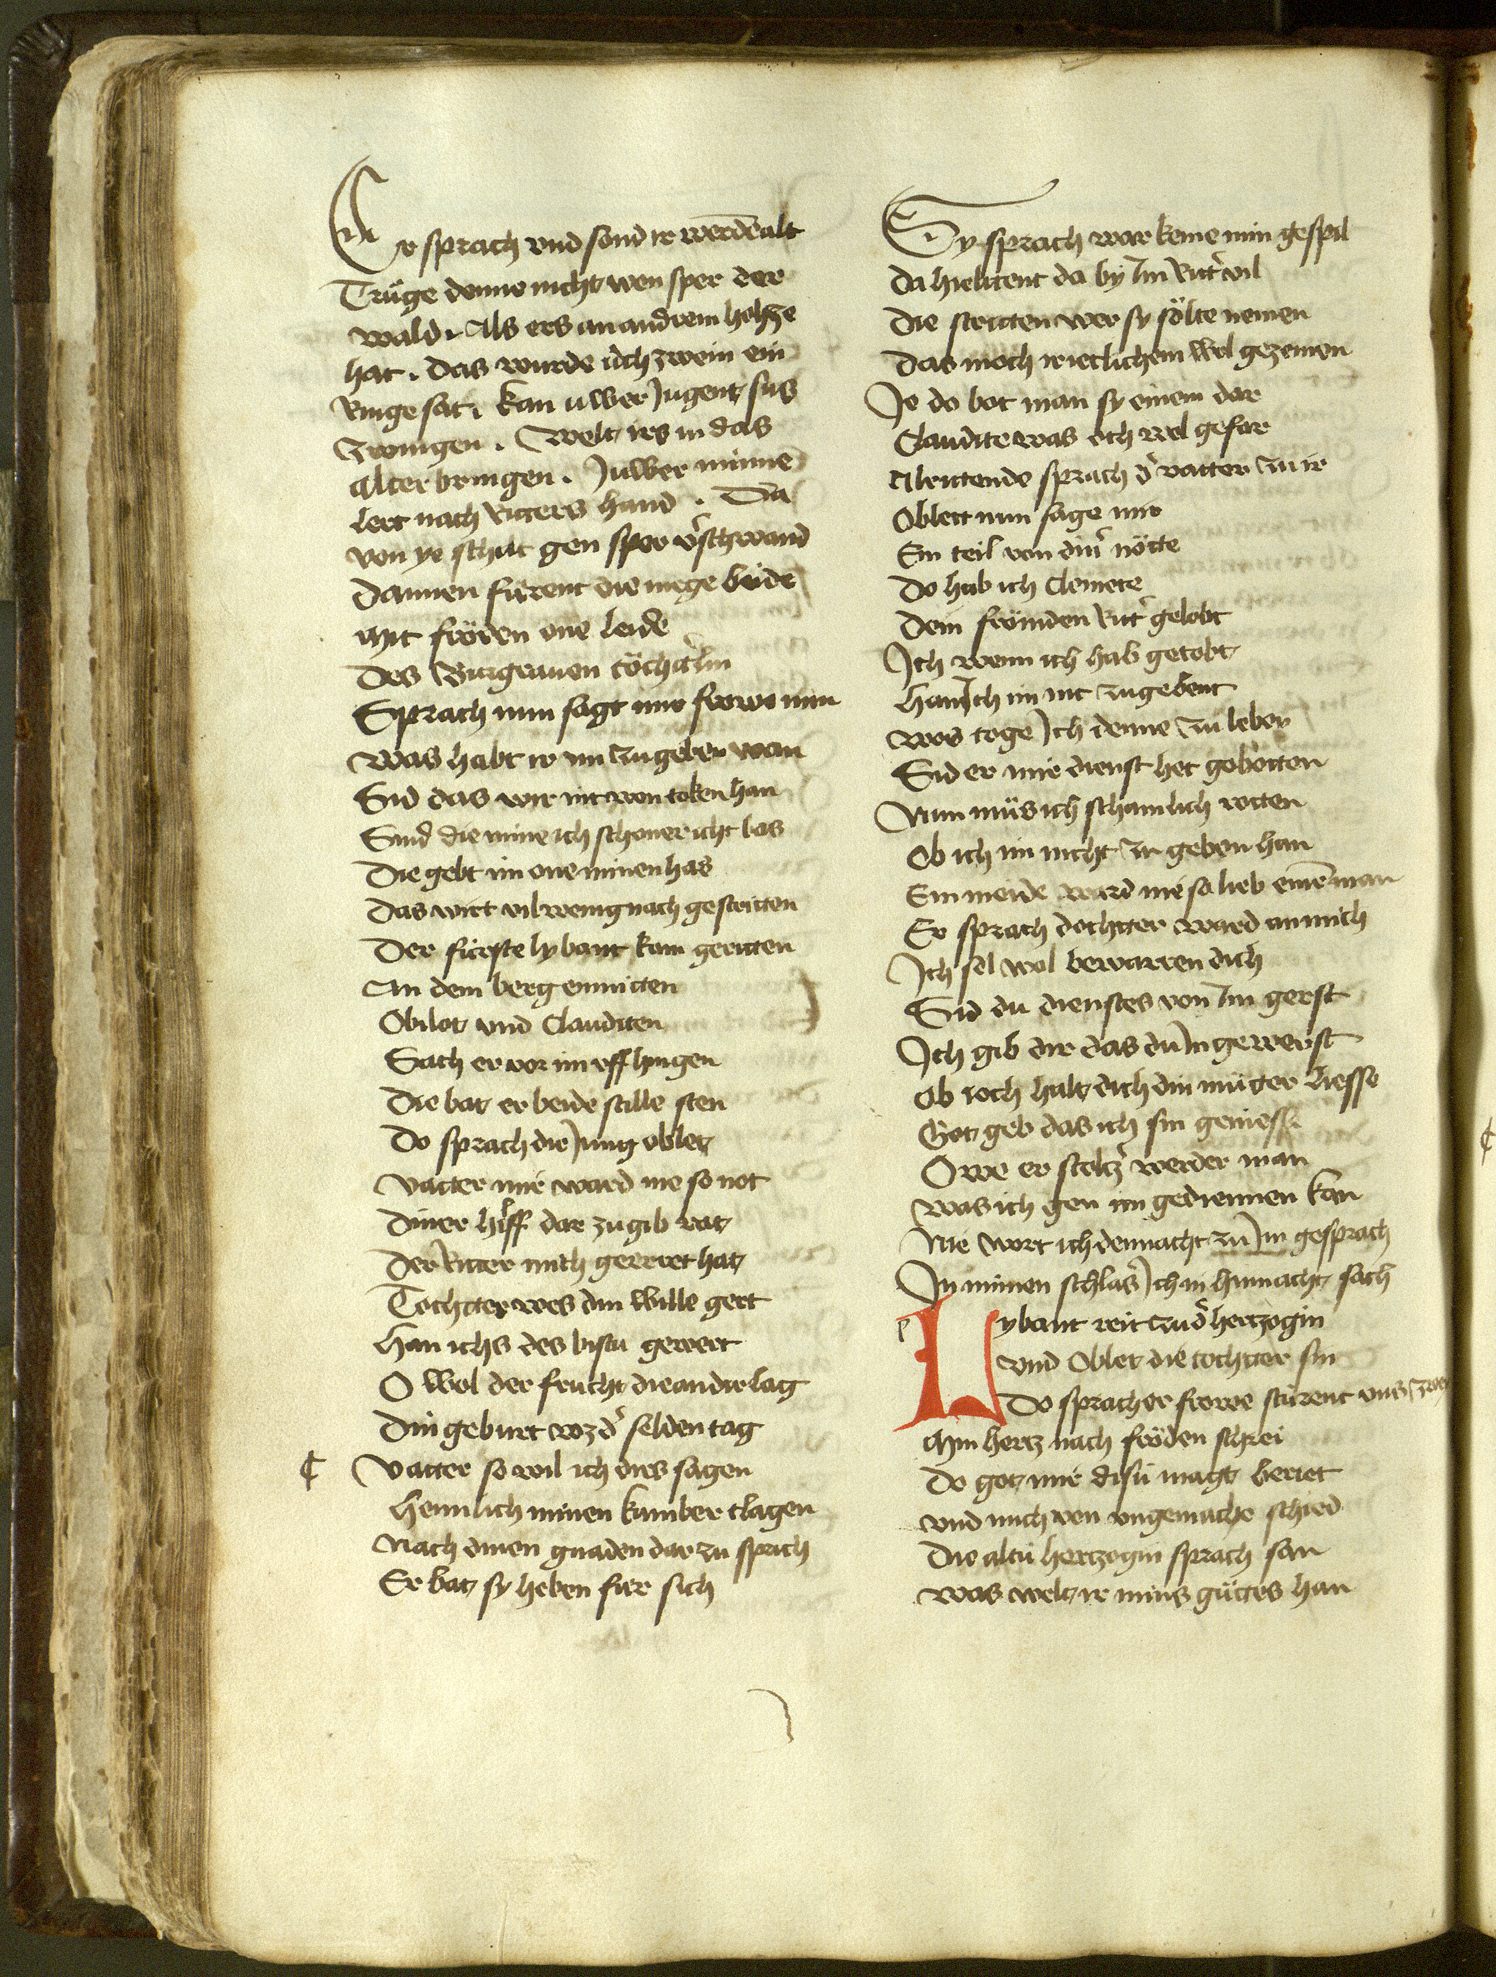 Er sprach vnd sond ir werden alt
Trüge denne nicht wen sper der
wald . Als ers an andrem holtze
hat . das wurde üch zwein ein
Ringe sat . kan uwer Jugent sus
Zwingen . Welt irs in das
Alter bringen . Juwer minne
lert nach Ritters hand . Da
von ye schilt gen sper v̾schwand
Dannen fürent die mege beide
Mit fröden one leide
Des Burgrauen töcht̾lin
Sprach nun sagt mir frowe min
Was habt ir im zu geben wan
Sid das wir nit won token han
Sind die mine icht schoner icht bas
Die gebt im one minen has
Das wirt vil wenig nach gestritten
Der fürste lybaut kam geritten
An dem berg enmitten
Obilot vnd Clauditen
Sach er vor im vff hingen
Die bat er beide stille sten
Do sprach die Jung oblet
Vatter mir ward nie so not
Diner hilff dar zu gib rat
Der Ritter mich gewert hat
Tochtter wes din wille gert
Han ichs des bistu gewert
O wol der frucht die an dir lag
Din geburt wz d̾ selden tag
¢ Vatter so wil ich dirs sagen
Heimlich minen kumber clagen
Nach dinen gnaden dar zu sprich
Er bat sy heben für sich
Sy sprach war keme min gespil
Da hieltent da by Im Ritt̾ vil
Die stritten wer sy sölte nemen
Das moch ir ietlichem wol gezemen
Je do bot man sy einem dar
Claudite was och wol gefar
Al rittende sprach d̾ vatter zu ir
Oblett nun sage mir
Ein teil von din̾ nötte
Do hab ich Clemete
Dem frömden Ritt̾ gelobt
Ich wenn ich hab getobt
Han Ich im nit zu gebent
Wos toge Ich denne zu leben
Sid er mir dienst het gebotten
Nun müs ich schamlich rotten
Ob ich im nicht zu geben han
Ein meide ward nie so lieb eine̅ man
Er sprach dochtter ward an mich
Ich sol wol bewarren dich
Sid du dienstes von Im gerst
Ich gib dir das du In gewerst
Ob ioch halt dich din müter liesse
Got geb das ich sin geniesse
Owe er stoltz̾ werder man
Was ich gen im gedienen kan
Nie wort ich dennacht zu Im gesprach
In minen schlaf Ich in hinnacht sach
Lybaut reit zu d̾ hertzogin
vnd Oblet die tochtter sin
Do sprach er frowe stürent vns zwei
Min hertz nach fröden schrei
Do got mir disü magt beriet
vnd mich von vngemache schied
Die altü hertzogin sprach san
Was welt ir mins gütes han